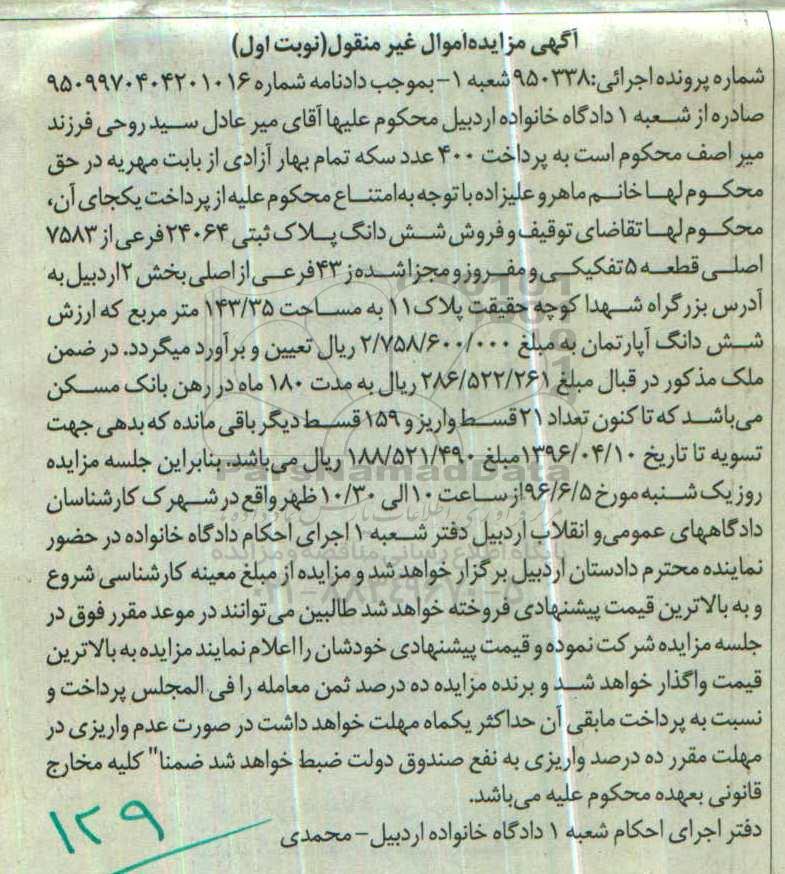 آگهی مزایده اموال غیر منقول(نوبت اول)
شماره پرونده اجرائی:۹۵۰۳۳۸ شعبه ۱- بموجب دادنامه شماره ۹۵۰۹۹۷۰۴۰۴۲۰۱۰۱۶
صادره از شعبه ۱ دادگاه خانواده اردبیل محکوم علیها آقای میر عادل سید روحی فرزند
میر اصف محکوم است به پرداخت ۴۰۰ عدد سکه تمام بهار آزادی از بابت مهریه در حق
محکوم لها خانم ماهرو علیزاده با توجه به امتناع محکوم علیه از پرداخت یکجای آن،
محکوم لها تقاضای توقیف و فروش شش دانگ پلاک ثبتی ۲۴۰۶۴ فرعی از ۷۵۸۳
اصلی قطعه ۵ تفکیکی و مفروز و مجزا شده ز ۴۳ فرعی از اصلی بخش ۲ اردبیل به
آدرس بزرگراه شهدا کوچه حقیقت پلاک ۱۱ به مساحت ۱۴۳/۳۵ متر مربع که ارزش
شش دانگ آپارتمان به مبلغ ۲/۷۵۸/۶۰۰/۰۰۰ ریال تعیین و برآورد میگردد. در ضمن
ملک مذکور در قبال مبلغ ۲۸۶/۵۲۲/۲۶۱ ریال به مدت ۱۸۰ ماه در رهن بانک مسکن
می‌باشد که تا کنون تعداد ۲۱ قسط واریز و ۱۵۹ قسط دیگر باقی مانده که بدهی جهت
تسویه تا تاریخ ۱۳۹۶/۰۴/۱۰ مبلغ ۱۸۸/۵۲۱/۴۹۰ ریال می‌باشد. بنابراین جلسه مزایده
روز یک شنبه مورخ ۹۶/۶/۵ از ساعت ۱۰ الی ۱۰/۳۰ ظهر واقع در شهرک کارشناسان
دادگاههای عمومی و انقلاب اردبیل دفتر شعبه ۱ اجرای احکام دادگاه خانواده در حضور
نماینده محترم دادستان اردبیل برگزار خواهد شد و مزایده از مبلغ معینه کارشناسی شروع
و به بالاترین قیمت پیشنهادی فروخته خواهد شد طالبین می‌توانند در موعد مقرر فوق در
جلسه مزایده شرکت نموده و قیمت پیشنهادی خودشان را اعلام نمایند مزایده به بالاترین
قیمت واگذار خواهد شد و برنده مزایده ده درصد ثمن معامله را فی المجلس پرداخت و
نسبت به پرداخت مابقی آن حداکثر یکماه مهلت خواهد داشت در صورت عدم واریزی در
مهلت مقرر ده درصد واریزی به نفع صندوق دولت ضبط خواهد شد ضمنا" کلیه مخارج
قانونی بعهده محکوم علیه می‌باشد.
دفتر اجرای احکام شعبه ۱ دادگاه خانواده اردبیل- محمدی
۱۲۹
ParsNamadData
پایگاه اطلاع رسانی مناقصه و مزایده